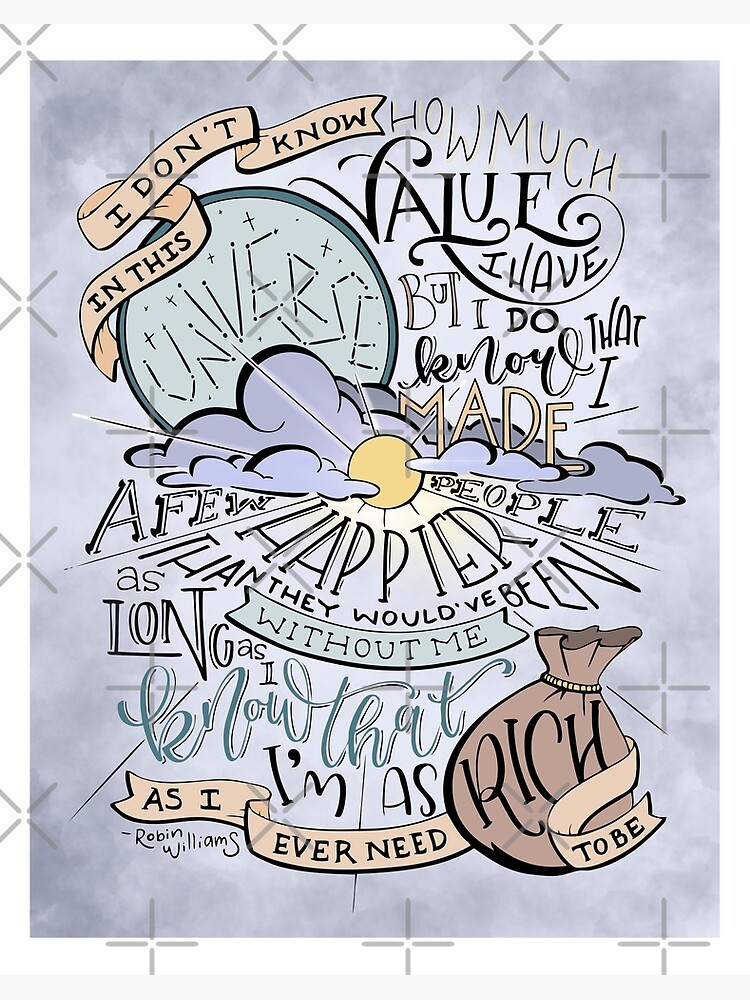 I DON'T KNOW HOW MUCH
VALUE
I HAVE
IN THIS
UNIVERSE
BUT I DO
know THAT
I
MADE
A FEW PEOPLE
HAPPIER
THAN THEY WOULD'VE BEEN
WITHOUT ME
as
LONG as
I
know that
I'm AS
RICH
AS I
EVER NEED
TO BE
-Robin
Williams